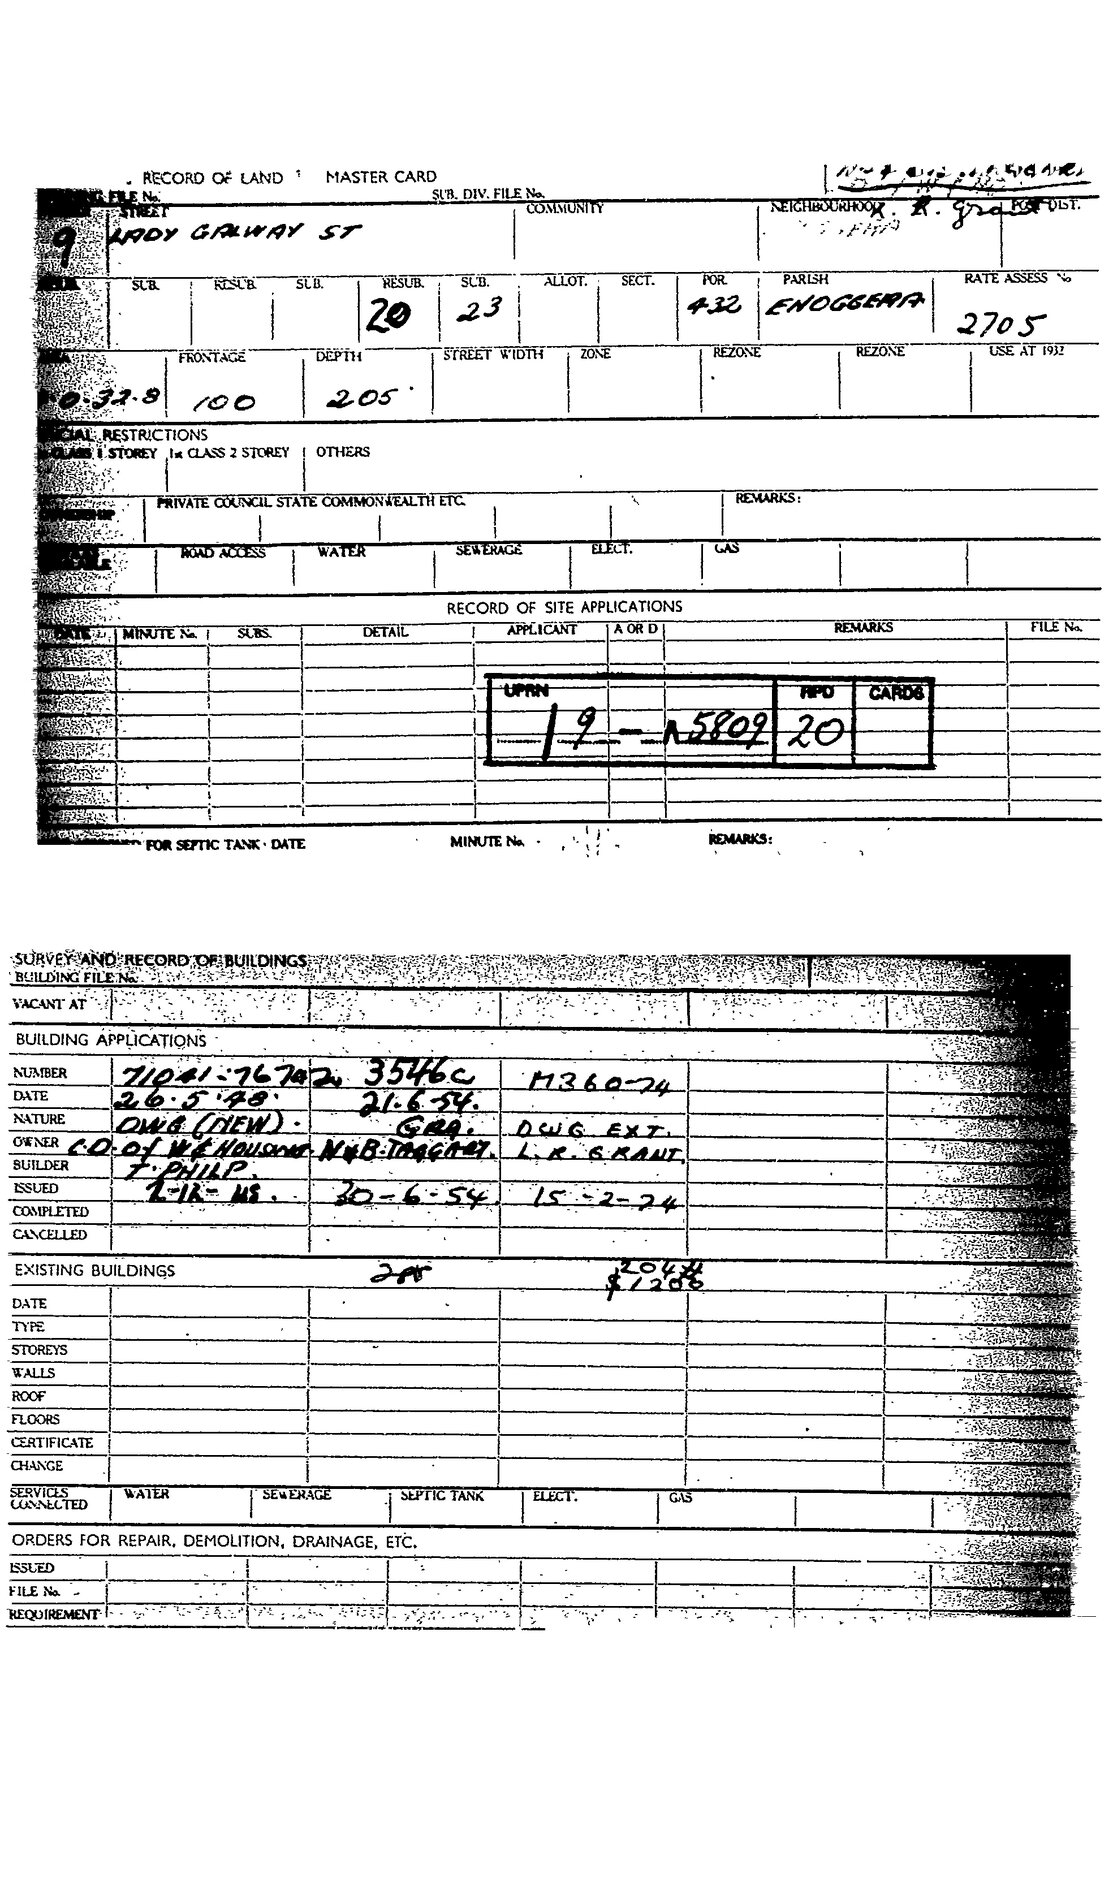 RECORD OF LAND MASTER CARD
FILE No. SUB. DIV. FILE No.
STREET COMMUNITY NEIGHBOURHOOD POST DIST.
9 LADY GALWAY ST
SUB. RESUB. SUB. RESUB. SUB. ALLOT. SECT. POR. PARISH RATE ASSESS No
20 23 432 ENOGGERA 2705
AREA FRONTAGE DEPTH STREET WIDTH ZONE REZONE REZONE USE AT 1932
0-32.8 100 205
RESTRICTIONS
CLASS 1 STOREY 1st CLASS 2 STOREY OTHERS
PRIVATE COUNCIL STATE COMMONWEALTH ETC. REMARKS:
ROAD ACCESS WATER SEWERAGE ELECT. GAS
RECORD OF SITE APPLICATIONS
DATE MINUTE No. SUBS. DETAIL APPLICANT A OR D REMARKS FILE No.
UPRN RPD CARDS
9 - 5809 20
FOR SEPTIC TANK · DATE MINUTE No. REMARKS:
SURVEY AND RECORD OF BUILDINGS
BUILDING FILE No.
VACANT AT
BUILDING APPLICATIONS
NUMBER 3546C M360-74
DATE 26.5.48. 21.6.54.
NATURE DWG (NEW). GRA. DWG EXT.
OWNER C.O. of N & B. TAGGART. L. R. GRANT.
BUILDER T. PHILP.
ISSUED 30-6-54 15-2-74
COMPLETED
CANCELLED
EXISTING BUILDINGS 204
$1200
DATE
TYPE
STOREYS
WALLS
ROOF
FLOORS
CERTIFICATE
CHANGE
SERVICES CONNECTED WATER SEWERAGE SEPTIC TANK ELECT. GAS
ORDERS FOR REPAIR, DEMOLITION, DRAINAGE, ETC.
ISSUED
FILE No.
REQUIREMENT